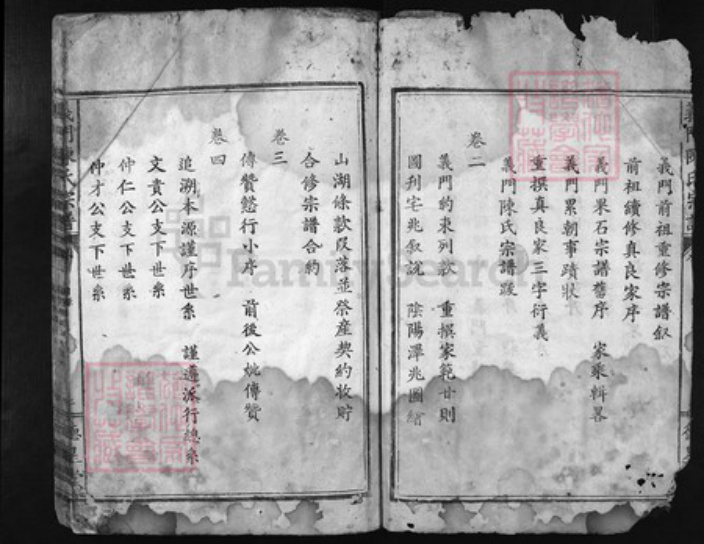 義門前祖重修宗譜叙
前祖續修真良家序
義門果石宗譜舊序 家乘輯畧
義門累朝事蹟狀
重撰真良家三字衍義
義門陳氏宗譜跋
卷二
義門約束列款 重撰家範廿則
國刋宅兆叙說 陰陽澤兆圖繪
山湖條款段落並祭産契約收貯
合修宗譜合約
卷三
傳贊懿行小序 前後公妣傳贊
卷四
追溯本源謹序世系 謹遵派行總系
文貴公支下世系
仲仁公支下世系
仲才公支下世系
義門陳氏宗譜
FamilySearch